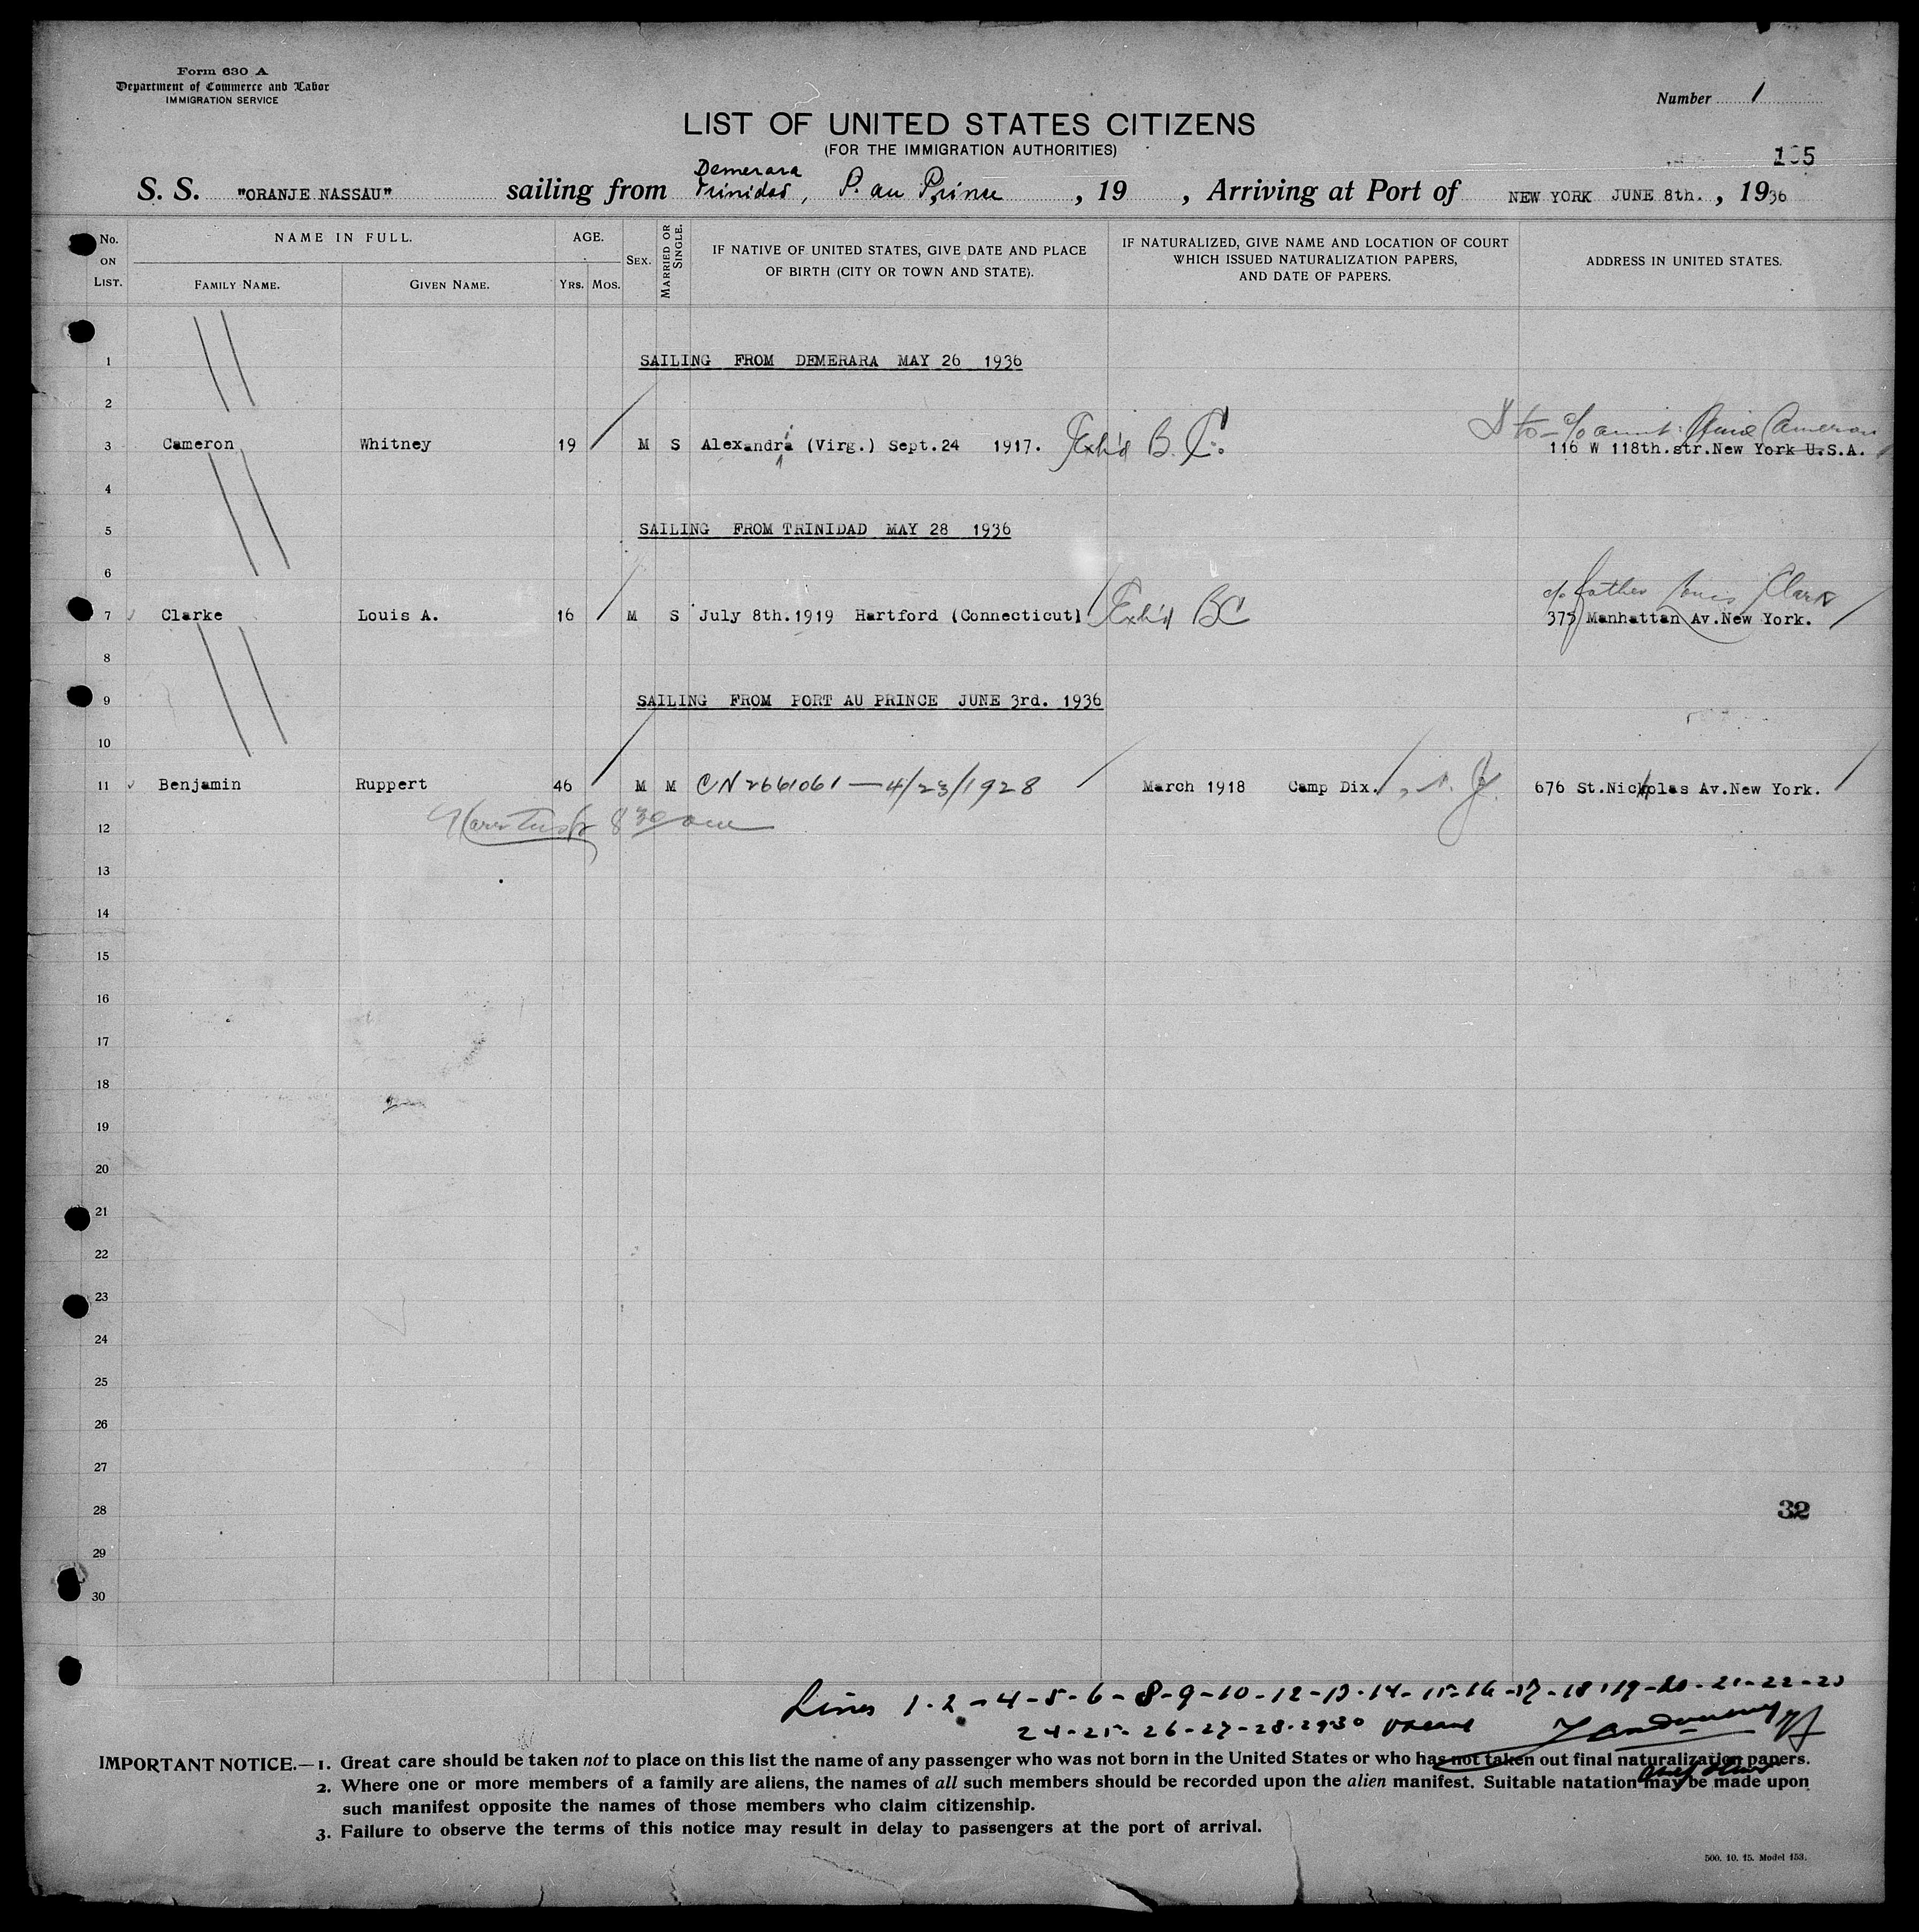 Form 630 A
Department of Commerce and Labor
IMMIGRATION SERVICE
Number 1
LIST OF UNITED STATES CITIZENS
(FOR THE IMMIGRATION AUTHORITIES)
Demerara
S. S. "ORANJE NASSAU" sailing from Trinidad, P. au Prince, 19 , Arriving at Port of NEW YORK JUNE 8th., 1936
No. ON LIST.
NAME IN FULL.
FAMILY NAME.
GIVEN NAME.
AGE.
YRS. MOS.
SEX.
MARRIED OR SINGLE.
IF NATIVE OF UNITED STATES, GIVE DATE AND PLACE
OF BIRTH (CITY OR TOWN AND STATE).
IF NATURALIZED, GIVE NAME AND LOCATION OF COURT
WHICH ISSUED NATURALIZATION PAPERS,
AND DATE OF PAPERS.
ADDRESS IN UNITED STATES.
1 SAILING FROM DEMERARA MAY 26 1936
2
c/o aunt: Cameron
3 Cameron Whitney 19 M S Alexandria (Virg.) Sept.24 1917. Exh'd B.C. 116 W 118th.str.New York U.S.A.
4
5 SAILING FROM TRINIDAD MAY 28 1936
6
c/o father Louis Clark
7 Clarke Louis A. 16 M S July 8th.1919 Hartford (Connecticut) Exh'd BC 375 Manhattan Av.New York.
8
9 SAILING FROM PORT AU PRINCE JUNE 3rd. 1936
10
11 Benjamin Ruppert 46 M M CN 2661061 — 4/23/1928 March 1918 Camp Dix., N. J. 676 St.Nicholas Av.New York.
12 8 30
13
14
15
16
17
18
19
20
21
22
23
24
25
26
27
28 32
29
30
Lines 1-2-4-5-6-8-9-10-12-13-14-15-16-17-18-19-20-21-22-23
24-25-26-27-28-29 30 vacant
IMPORTANT NOTICE.—1. Great care should be taken not to place on this list the name of any passenger who was not born in the United States or who has not taken out final naturalization papers.
2. Where one or more members of a family are aliens, the names of all such members should be recorded upon the alien manifest. Suitable natation may be made upon
such manifest opposite the names of those members who claim citizenship.
3. Failure to observe the terms of this notice may result in delay to passengers at the port of arrival.
500. 10. 15. Model 153.